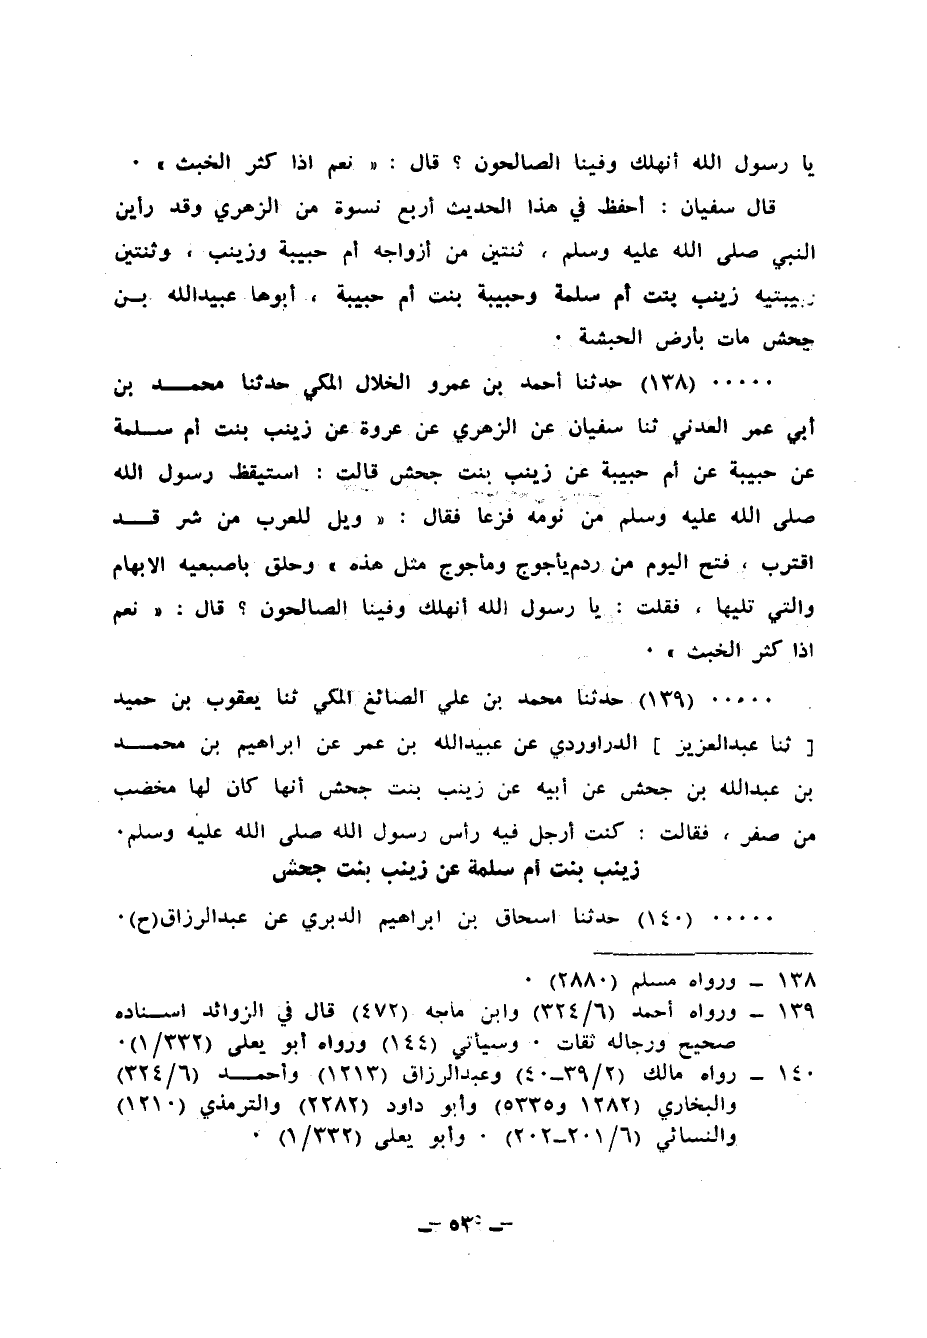 يا رسول الله أنهلك وفينا الصالحون ؟ قال : « نعم اذا كثر الخبث » ٠
قال سفيان : أحفظ في هذا الحديث أربع نسوة من الزهري وقد رأين
النبي صلى الله عليه وسلم ، ثنتين من أزواجه أم حبيبة وزينب ، وثنتين
ربيبتيه زينب بنت أم سلمة وحبيبة بنت أم حبيبة ، أبوها عبيدالله بن
جحش مات بأرض الحبشة ٠
٠٠٠٠٠ (١٣٨) حدثنا أحمد بن عمرو الخلال المكي حدثنا محمد بن
أبي عمر العدني ثنا سفيان عن الزهري عن عروة عن زينب بنت أم سلمة
عن حبيبة عن أم حبيبة عن زينب بنت جحش قالت : استيقظ رسول الله
صلى الله عليه وسلم من نومه فزعا فقال : « ويل للعرب من شر قد
اقترب ، فتح اليوم من ردم يأجوج ومأجوج مثل هذه » وحلق باصبعيه الابهام
والتي تليها ، فقلت : يا رسول الله أنهلك وفينا الصالحون ؟ قال : « نعم
اذا كثر الخبث » ٠
٠٠٠٠٠ (١٣٩) حدثنا محمد بن علي الصائغ المكي ثنا يعقوب بن حميد
[ ثنا عبدالعزيز ] الدراوردي عن عبيدالله بن عمر عن ابراهيم بن محمد
بن عبدالله بن جحش عن أبيه عن زينب بنت جحش أنها كان لها مخضب
من صفر ، فقالت : كنت أرجل فيه رأس رسول الله صلى الله عليه وسلم٠
زينب بنت أم سلمة عن زينب بنت جحش
٠٠٠٠٠ (١٤٠) حدثنا اسحاق بن ابراهيم الدبري عن عبدالرزاق(ح)٠
١٣٨ ـ ورواه مسلم (٢٨٨٠) ٠
١٣٩ ـ ورواه أحمد (٣٢٤/٦) وابن ماجه (٤٧٢) قال في الزوائد اسناده
صحيح ورجاله ثقات ٠ وسيأتي (١٤٤) ورواه أبو يعلى (١/٣٣٢)٠
١٤٠ ـ رواه مالك (٣٩/٢ـ٤٠) وعبدالرزاق (١٢١٣) وأحمد (٣٢٤/٦)
والبخاري (١٢٨٢ و٥٣٣٥) وأبو داود (٢٢٨٢) والترمذي (١٢١٠)
والنسائي (٢٠١/٦ـ٢٠٢) ٠ وأبو يعلى (١/٣٣٢) ٠
ـ ٥٣ ـ